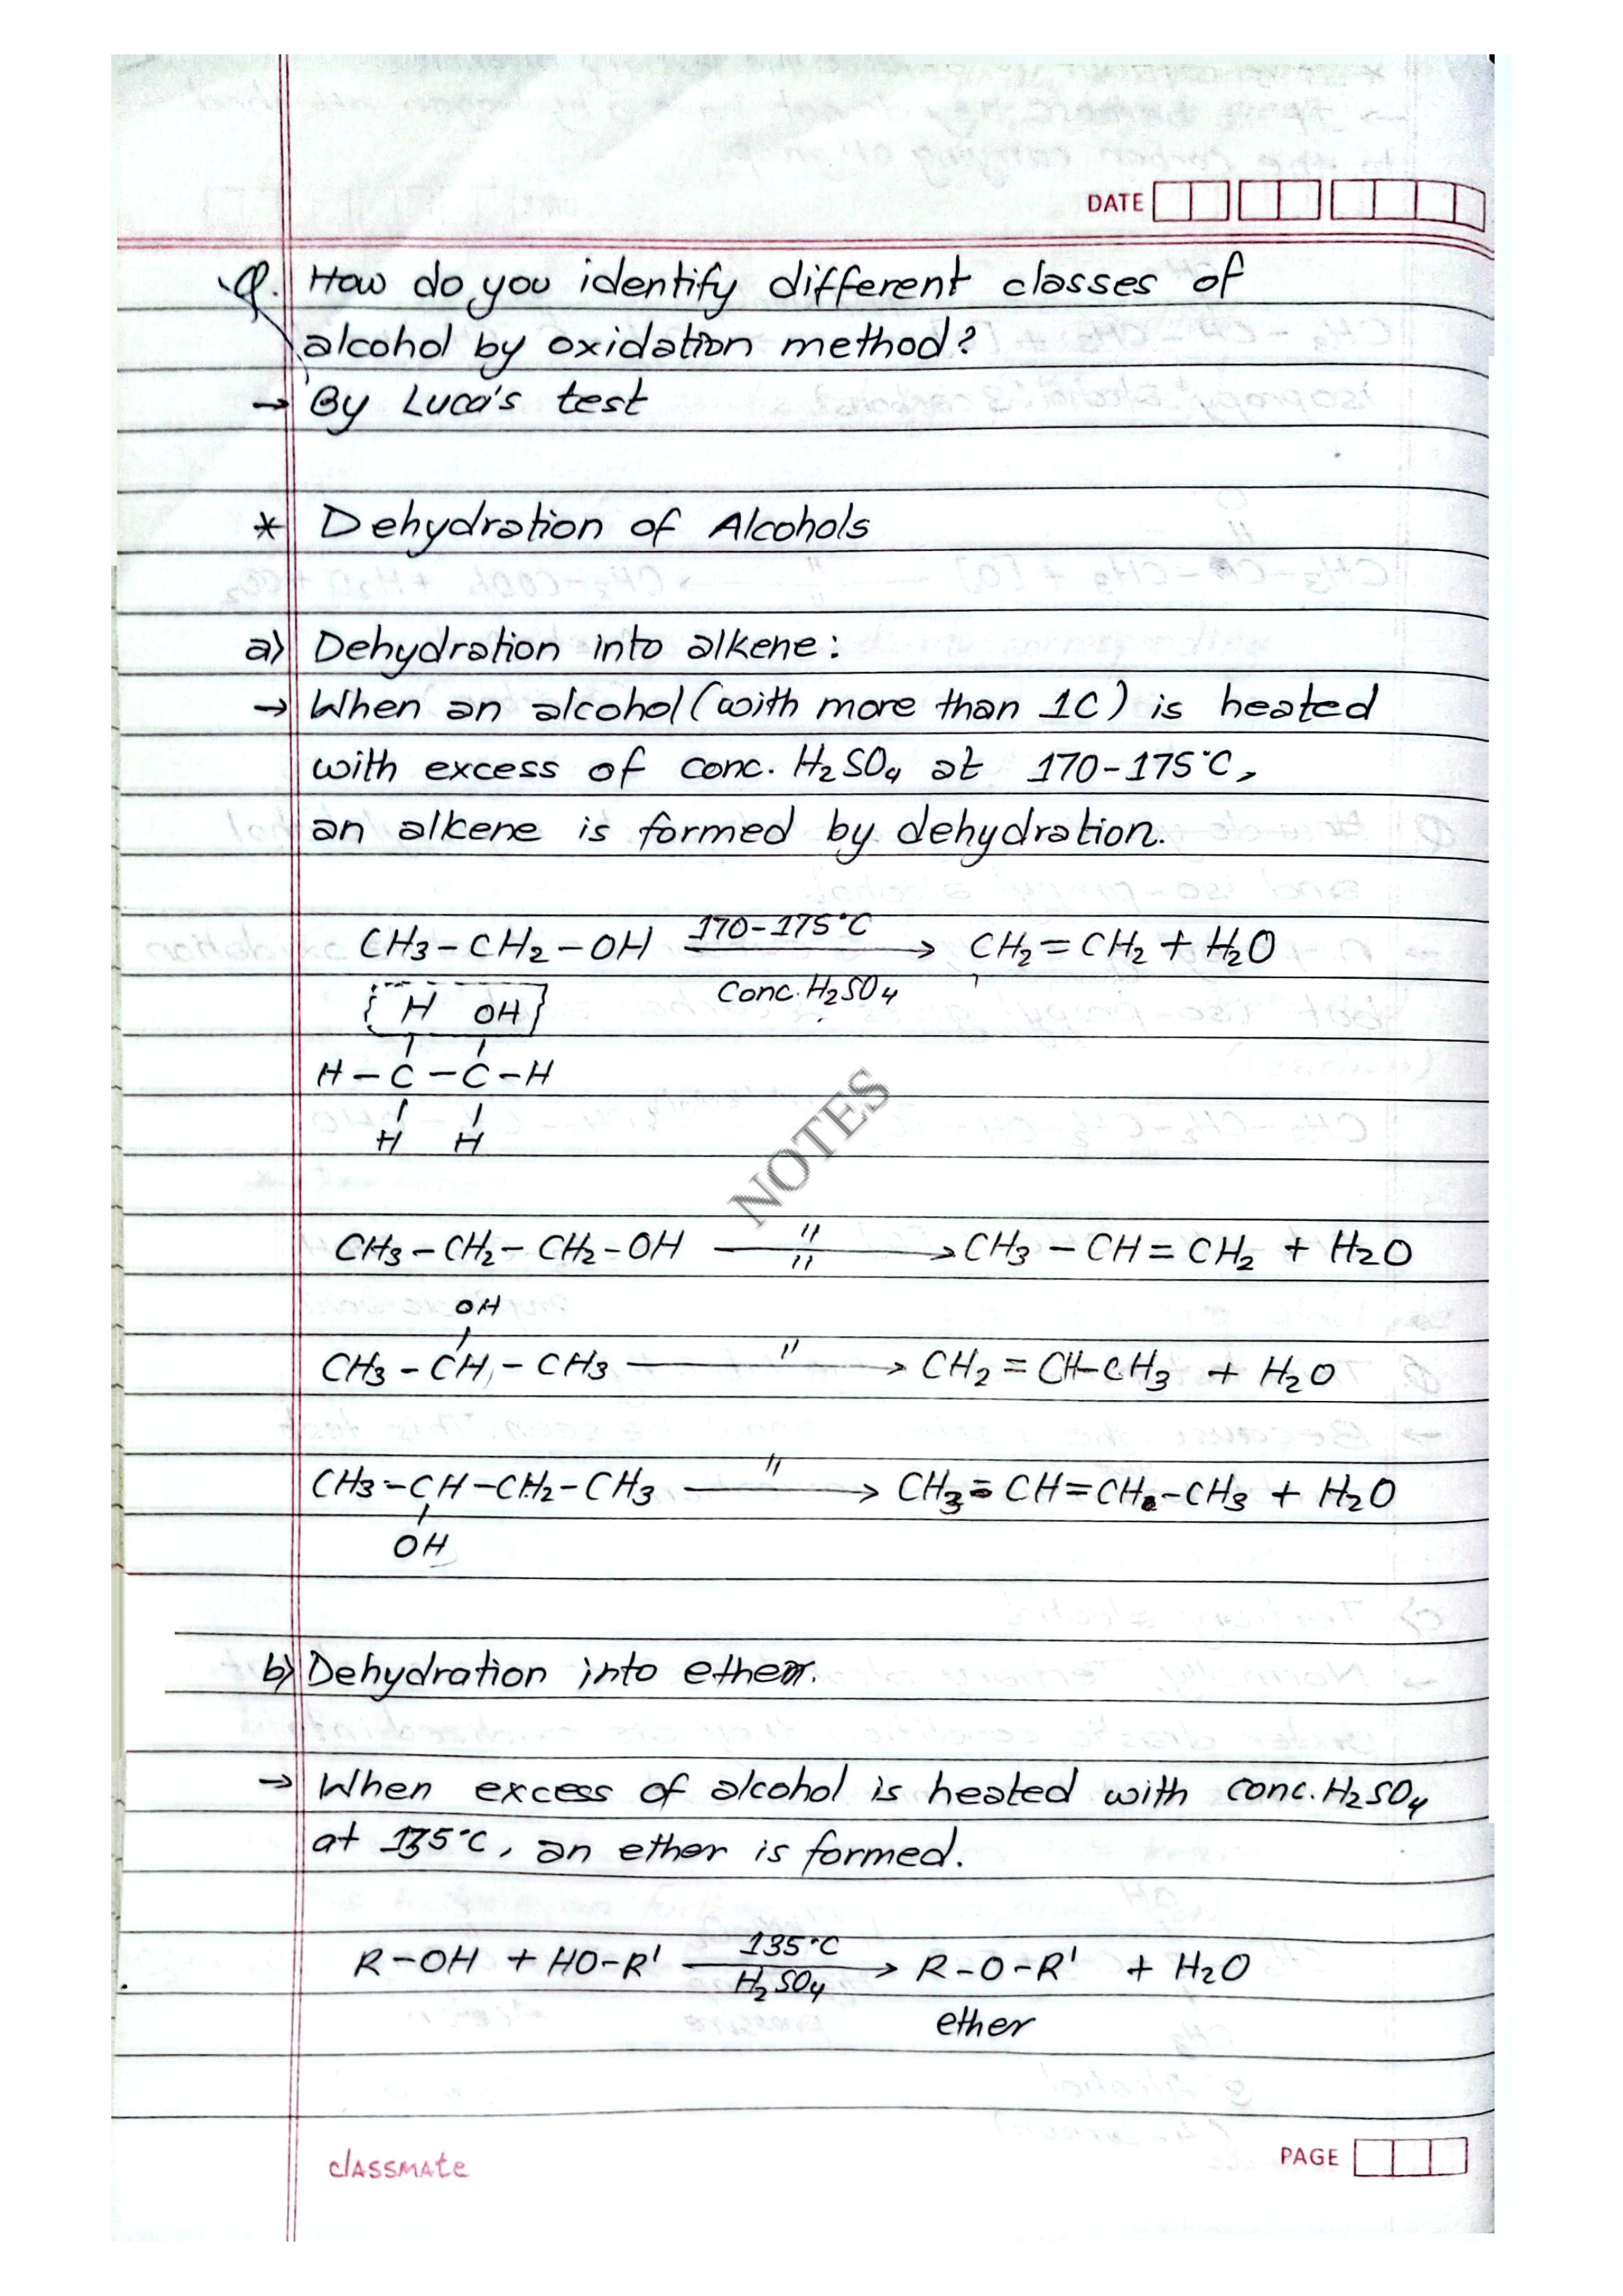 DATE
Q. How do you identify different classes of
alcohol by oxidation method?
→ By Luca's test
* Dehydration of Alcohols
a) Dehydration into alkene:
→ When an alcohol (with more than 1C) is heated
with excess of conc. H₂SO₄ at 170-175°C,
an alkene is formed by dehydration.
170-175°C
CH₃-CH₂-OH → CH₂=CH₂ + H₂O
Conc. H₂SO₄
H OH
H-C-C-H
H H
NOTES
CH₃-CH₂-CH₂-OH —"/"→ CH₃-CH=CH₂ + H₂O
OH
CH₃-CH-CH₃ —"→ CH₂=CH-CH₃ + H₂O
CH₃-CH-CH₂-CH₃ —"→ CH₃-CH=CH-CH₃ + H₂O
OH
b) Dehydration into ether.
→ When excess of alcohol is heated with conc. H₂SO₄
at 135°C, an ether is formed.
135°C
R-OH + HO-R' → R-O-R' + H₂O
H₂SO₄
ether
classmate
PAGE